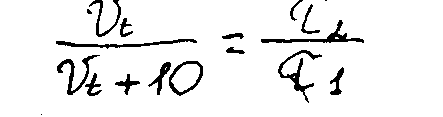 Vt / (Vt + 10) = τ2 / τ1